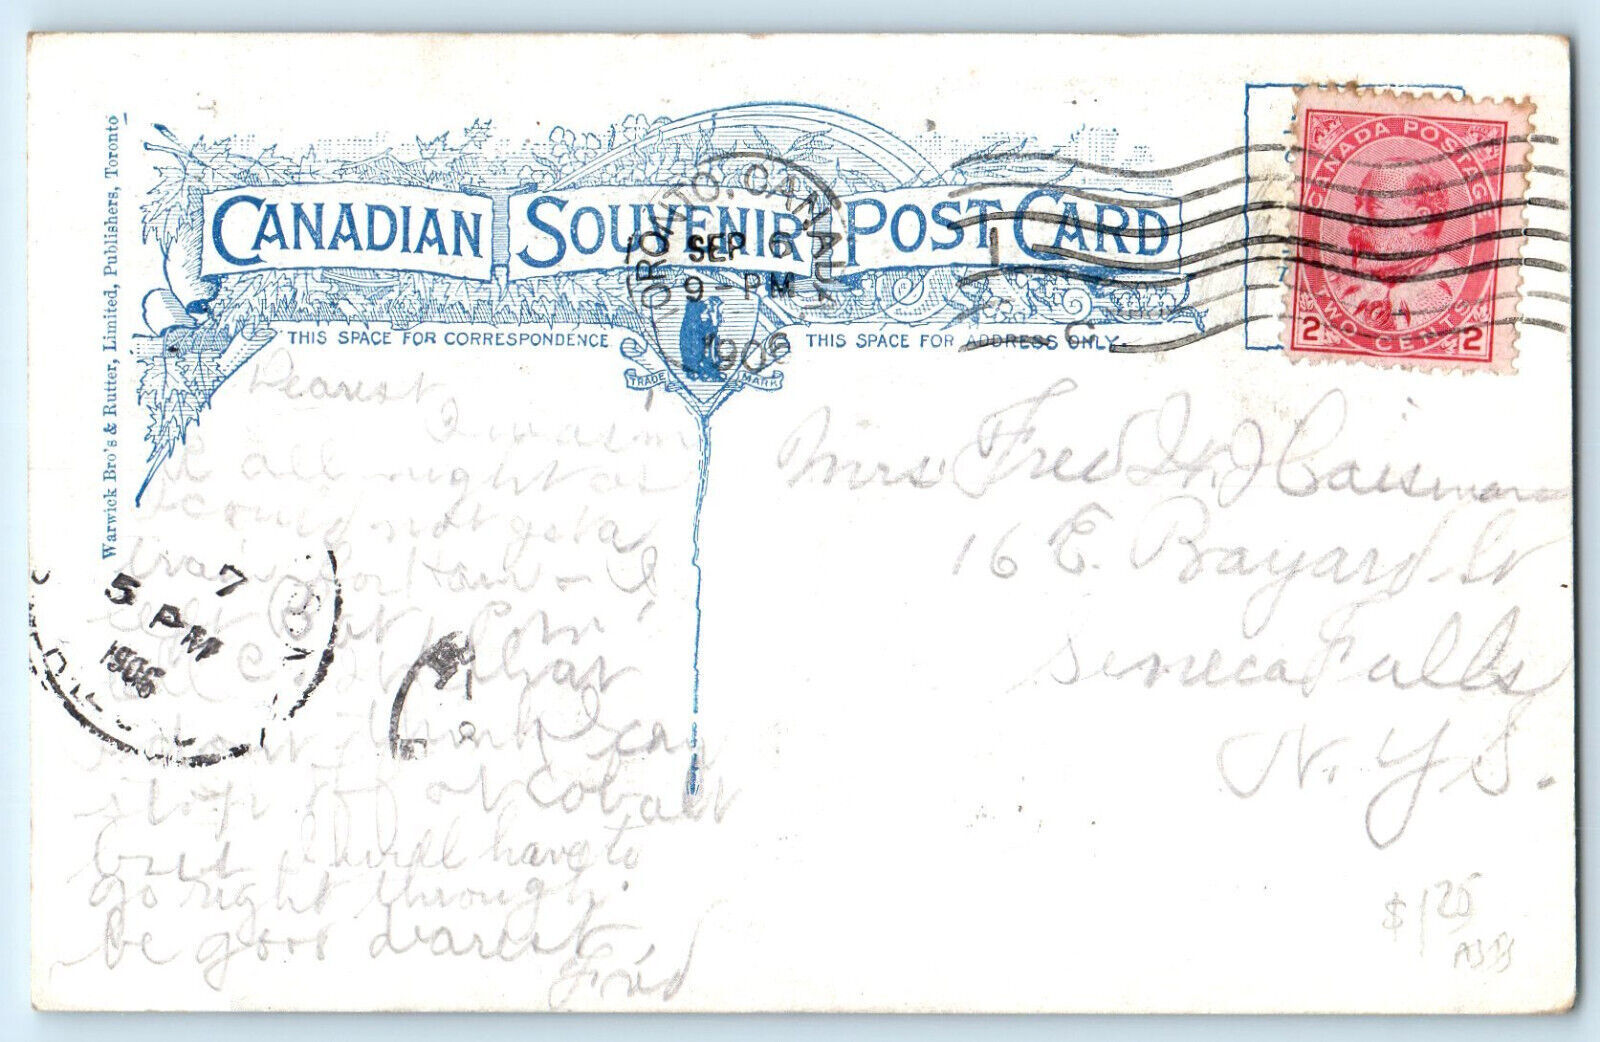 Warwick Bro's & Rutter, Limited, Publishers, Toronto
CANADIAN SOUVENIR POST CARD
TORONTO, CANADA
SEP 6
9-PM
1906
CANADA POSTAGE
2 TWO CENTS 2
THIS SPACE FOR CORRESPONDENCE
THIS SPACE FOR ADDRESS ONLY.
TRADE MARK
Dearest,
I was in
all night as
I could not get a
train
that
I don't think I can
stop off at Cobalt
but I will have to
go right through.
be good dearest
Fred
7
5 PM
1906
Mrs Fred
16 E. Bayard St
Seneca Falls
N.Y. S.
$1 25